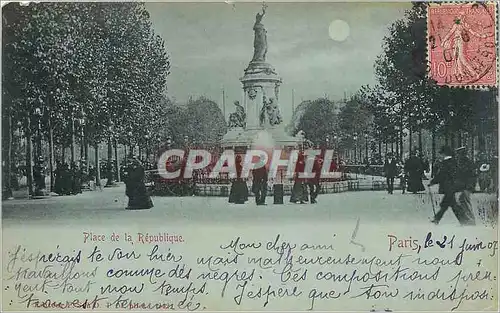 RÉPUBLIQUE FRANÇAISE
10c
CPAPHIL
Place de la République.
Paris, le 21 juin 07
Mon cher ami
J'espérais te voir hier mais malheureusement nous
travaillons comme des nègres. Ces compositions pren-
nent tout mon temps. J'espère que ton indispos-